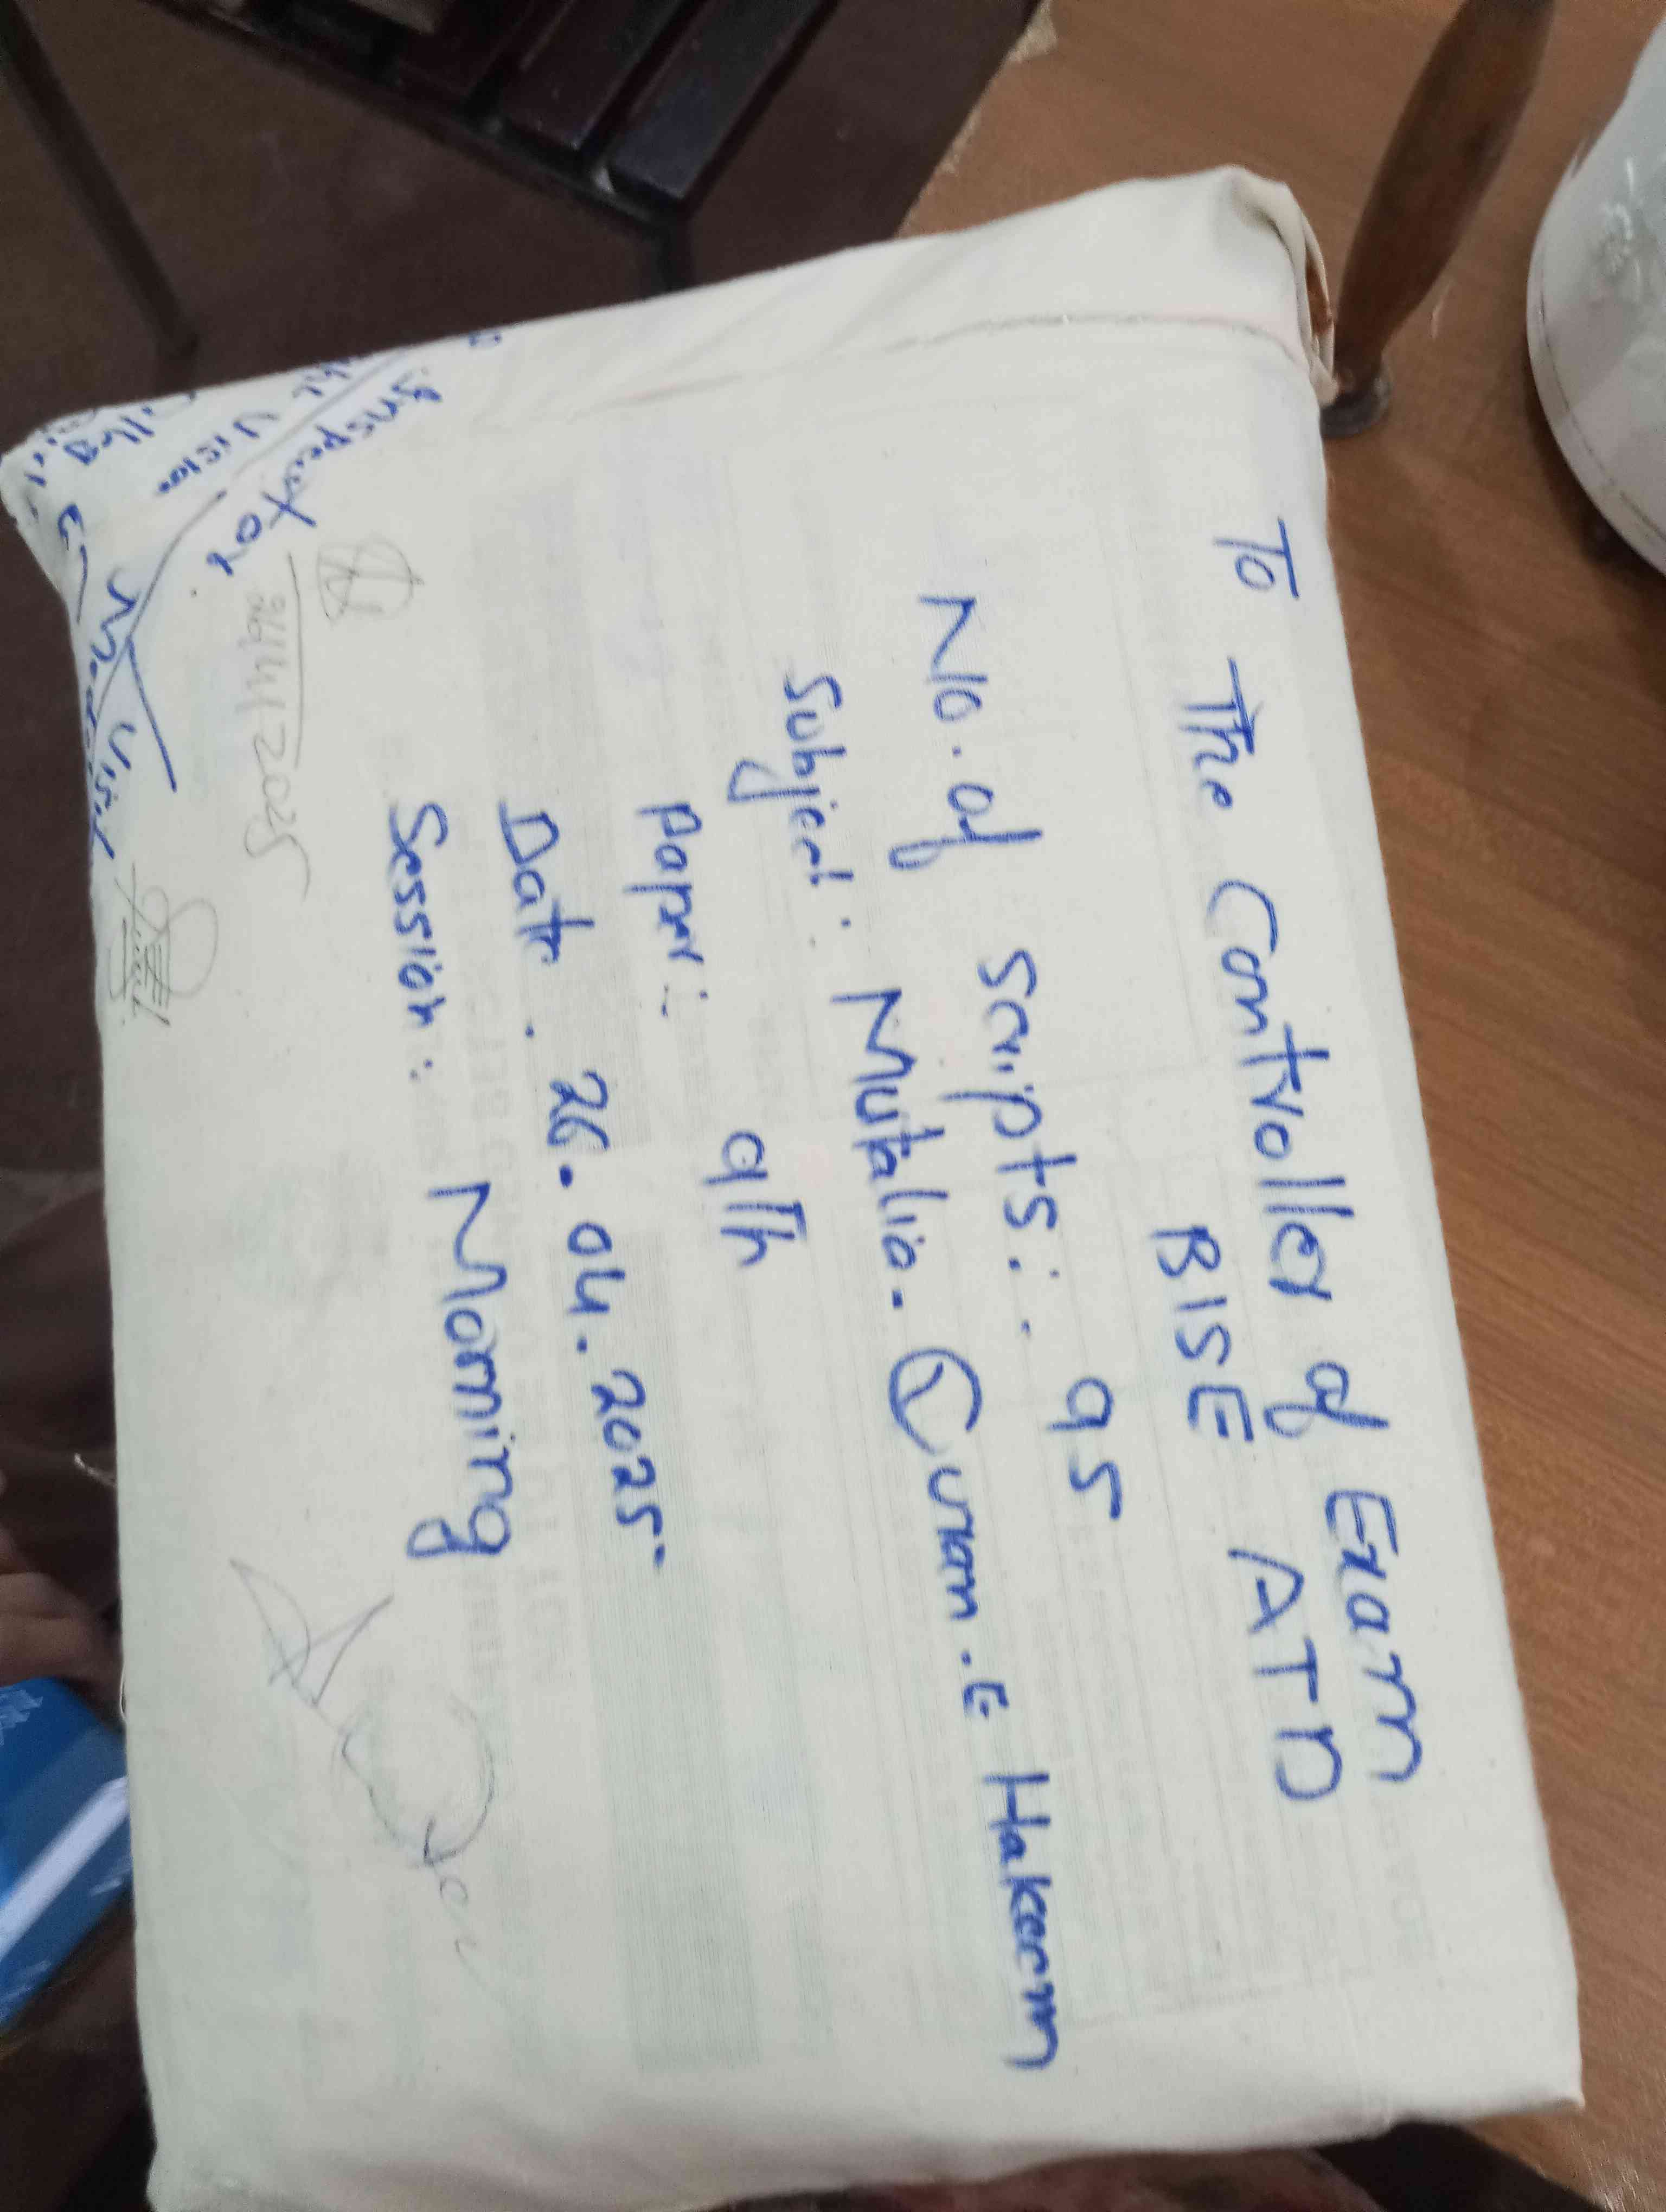 To The Controller of Exam
BISE ATD
No. of Scripts: 95
Subject: Mutalia. Quran.E Hakeem
Paper: 9th
Date. 26.04.2025
Session: Morning
Inspector
26/4/2025